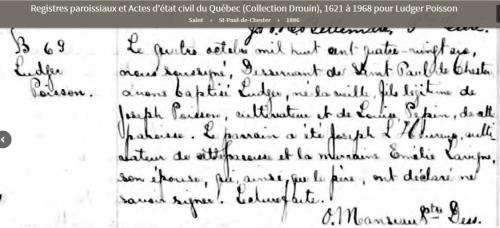 Registres paroissiaux et Actes d'état civil du Québec (Collection Drouin), 1621 à 1968 pour Ludger Poisson
Saint > St-Paul-de-Chester > 1886
B 69
Ludger
Poisson.
Le quatre octobre mil huit cent quatre-vingt-six,
nous soussigné, Desservant de Saint Paul de Chester
avons baptisé Ludger, né la veille, fils légitime de
Joseph Poisson, cultivateur et de Louise Pepin, de cette
paroisse. Le parrain a été Joseph L'Heureux, culti-
vateur de cette paroisse et la marraine Emélie
son épouse, qui, ainsi que le père, ont déclaré ne
savoir signer. Lecture faite.
O. Manseau Ptre Dess.